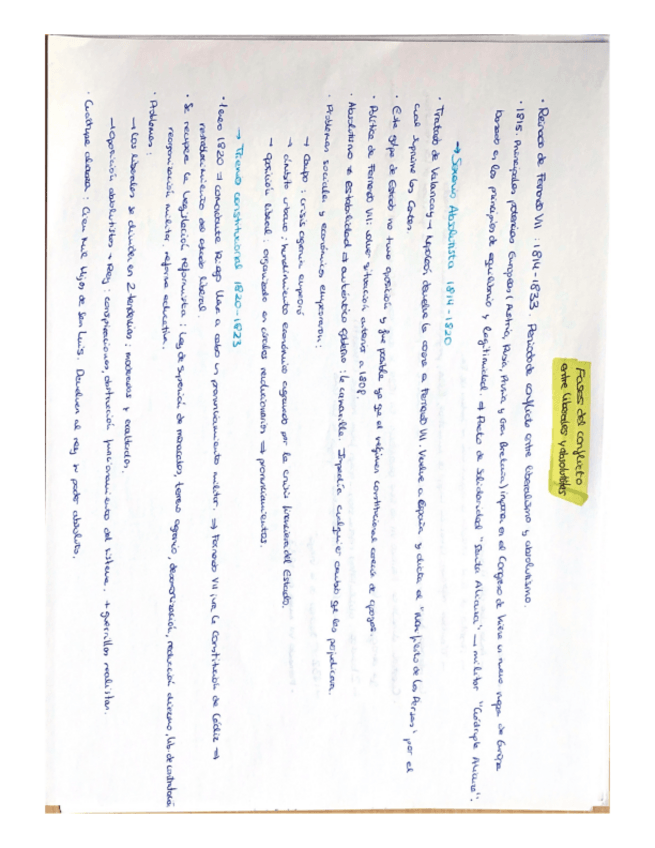 Fases del conflicto
entre liberales y absolutistas
· Reinado de Fernando VII : 1814-1833. Periodo de conflicto entre liberalismo y absolutismo.
· 1815. Principales potencias Europeas (Austria, Rusia, Prusia y Gran Bretaña) imponen en el Congreso de Viena un nuevo mapa de Europa
basado en los principios de equilibrio y legitimidad. ⇒ Pacto de Solidaridad "Santa Alianza" → militar "Cuádruple Alianza".
→ Sexenio Absolutista 1814-1820
· Tratado de Valençay → Napoleón devuelve la corona a Fernando VII. Vuelve a España y dicta el "Manifiesto de los Persas" por el
cual suprime las Cortes.
· Este golpe de Estado no tuvo oposición y fue posible ya que el régimen constitucional carecía de apoyos.
· Política de Fernando VII: volver situación anterior a 1808.
· Absolutismo ≠ Estabilidad ⇒ auténtico gobierno : la camarilla. Impedía cualquier cambio que les perjudicara.
· Problemas sociales y económicos empeoraron :
→ Campo : crisis agraria empeoró
→ ámbito urbano : hundimiento económico agravado por la crisis financiera del Estado.
→ oposición liberal : organizada en círculos reducionarios ⇒ pronunciamientos.
→ Trienio constitucional 1820-1823
· 1 enero 1820 ⇒ comandante Riego lleva a cabo un pronunciamiento militar. ⇒ Fernando VII jura la Constitución de Cádiz ⇒
restablecimiento del estado liberal.
· Se recupera la legislación reformista : Ley de supresión de monacales, terreno agrario, desamortización, reducción diezmo, lib. de contratación
reorganización militar, reforma educativa.
· Problemas :
→ Los liberales se dividen en 2 tendencias : moderados y exaltados.
→ oposición absolutistas → Rey : conspiraciones, obstrucción funcionamiento del sistema. + guerrillas realistas.
· Cuádruple alianza : Cien Mil Hijos de San Luis. Devuelven al rey su poder absoluto.